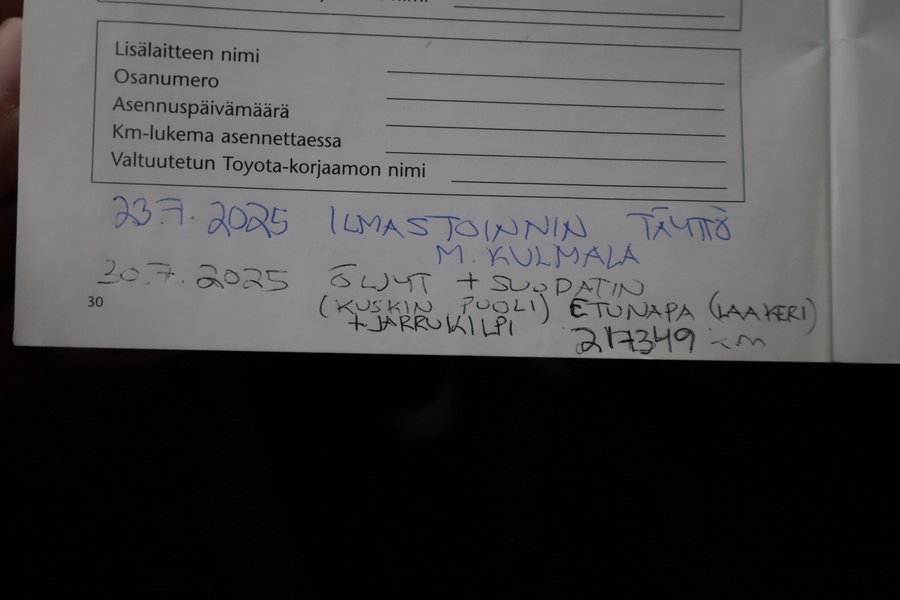 Lisälaitteen nimi
Osanumero
Asennuspäivämäärä
Km-lukema asennettaessa
Valtuutetun Toyota-korjaamon nimi
23.7.2025 ILMASTOINNIN TÄYTTÖ
M. KULMALA
30.7.2025 ÖLJYT + SUODATIN
(KUSKIN PUOLI) ETUNAPA (LAAKERI)
+ JARRUKILPI 217349 km
30